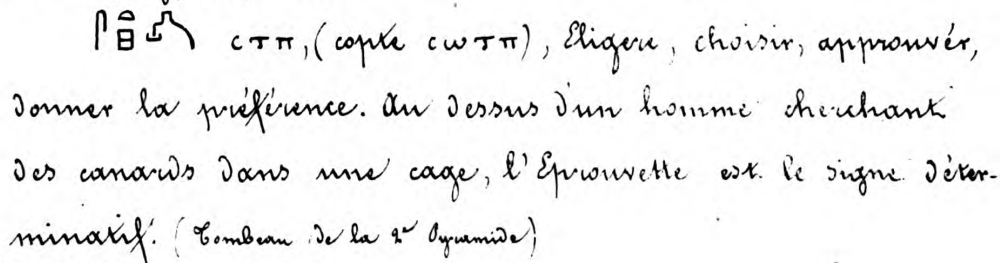 ⲥⲧⲡ, (copte ⲥⲱⲧⲡ), Eligere, choisir, approuvér,
donner la préférence. Au dessus d'un homme cherchant
des canards dans une cage, l'Eprouvette est le signe déter-
minatif. (Tombeau de la 2e Pyramide)